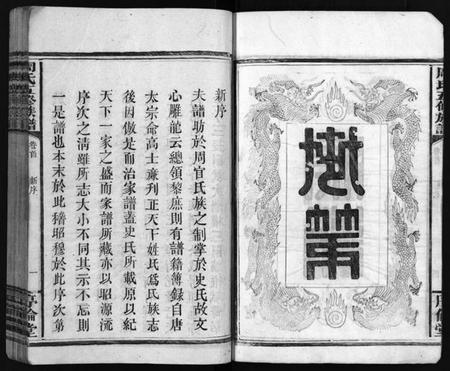 周氏五修族譜
新序
夫譜昉於周官氏族之制掌於史氏故文
心雕龍云總領黎庶則有譜籍簿錄自唐
太宗命高士亷刋正天下姓氏爲氏族志
後因倣是而治家譜蓋史氏所載原以紀
天下一家之盛而家譜所藏亦以昭源流
序次之淸雖所志大小不同其示不忘則
一是譜也本末於此稽昭穆於此序次第
周氏五修族譜
卷首
新序
一